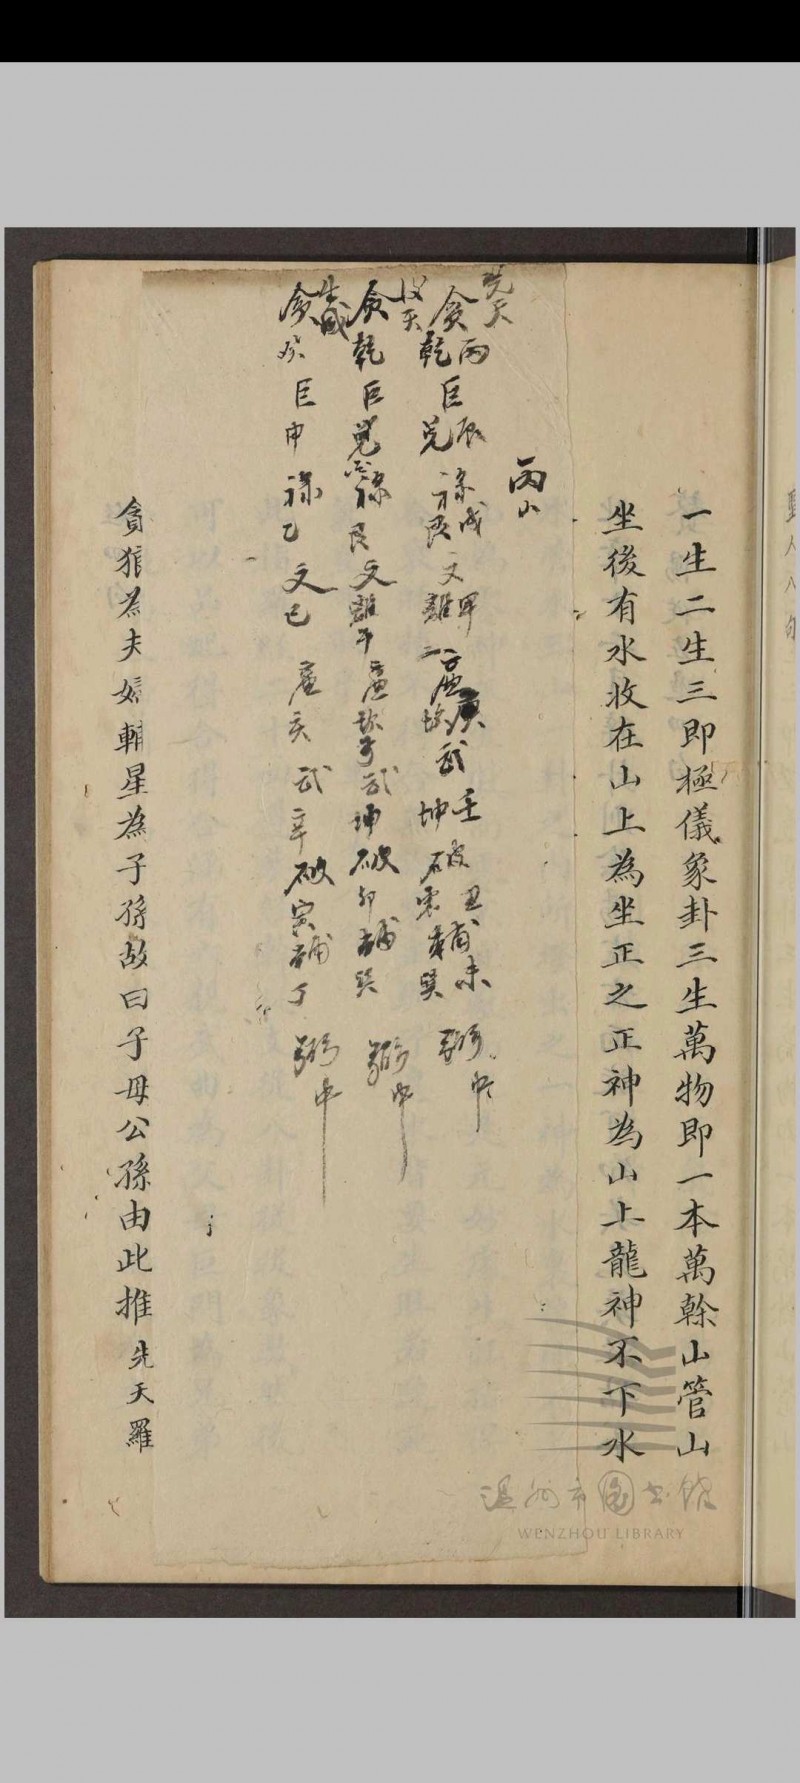 一生二生三即極儀象卦三生萬物即一本萬榦山管山
坐後有水收在山上為坐正之正神為山上龍神不下水
丙山
先天
丙 辰 戌 甲 庚 壬 丑 未
貪乾 巨兌 祿艮 文離 廉坎 武坤 破震 輔巽 弼中
後天
貪乾 巨兌 祿艮 文離午 廉坎子 武坤 破卯 輔巽 弼中
生成
貪癸 巨申 祿乙 文巳 廉亥 武辛 破寅 輔丁 弼中
貪狼為夫婦輔星為子孫故曰子母公孫由此推先天羅
温州市图书馆
WENZHOU LIBRARY